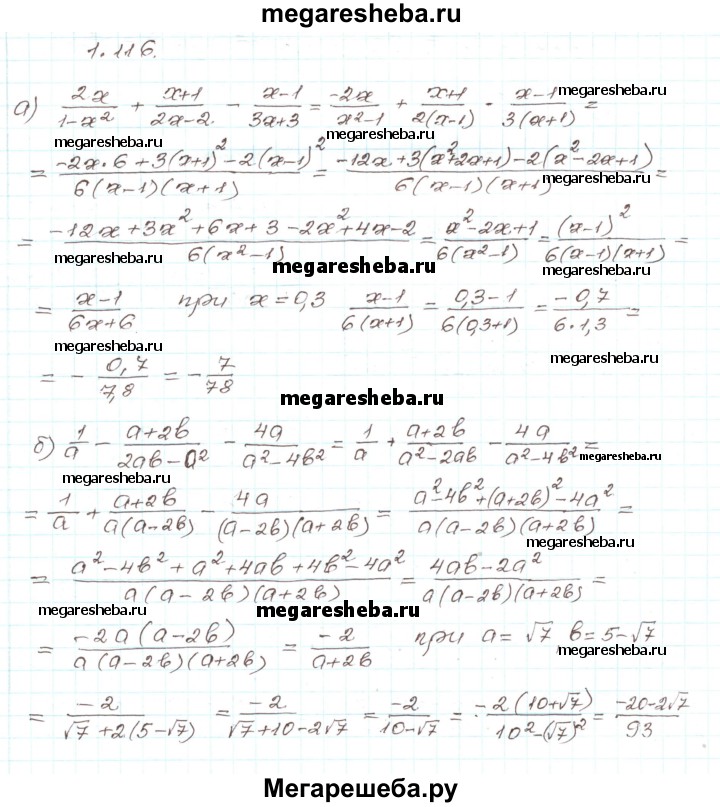 megaresheba.ru
1.116.
а) 2x/(1-x²) + (x+1)/(2x-2) - (x-1)/(3x+3) = -2x/(x²-1) + (x+1)/(2(x-1)) - (x-1)/(3(x+1)) =
megaresheba.ru
megaresheba.ru megaresheba.ru
= (-2x·6+3(x+1)²-2(x-1)²)/(6(x-1)(x+1)) = (-12x+3(x²+2x+1)-2(x²-2x+1))/(6(x-1)(x+1)) =
= (-12x+3x²+6x+3-2x²+4x-2)/(6(x²-1)) = (x²-2x+1)/(6(x²-1)) = (x-1)²/(6(x-1)(x+1)) =
megaresheba.ru megaresheba.ru megaresheba.ru
= (x-1)/(6x+6) при x=0,3 (x-1)/(6(x+1)) = (0,3-1)/(6(0,3+1)) = (-0,7)/(6·1,3) =
megaresheba.ru megaresheba.ru
= - 0,7/7,8 = - 7/78
megaresheba.ru
б) 1/a - (a+2b)/(2ab-a²) - 4a/(a²-4b²) = 1/a + (a+2b)/(a²-2ab) - 4a/(a²-4b²) =
megaresheba.ru
megaresheba.ru
= 1/a + (a+2b)/(a(a-2b)) - 4a/((a-2b)(a+2b)) = (a²-4b²+(a+2b)²-4a²)/(a(a-2b)(a+2b)) =
megaresheba.ru
= (a²-4b²+a²+4ab+4b²-4a²)/(a(a-2b)(a+2b)) = (4ab-2a²)/(a(a-2b)(a+2b)) =
megaresheba.ru megaresheba.ru
= -2a(a-2b)/(a(a-2b)(a+2b)) = -2/(a+2b) при a=√7 b=5-√7
megaresheba.ru
= -2/(√7+2(5-√7)) = -2/(√7+10-2√7) = -2/(10-√7) = -2(10+√7)/(10²-(√7)²) = (-20-2√7)/93
Мегарешеба.ру